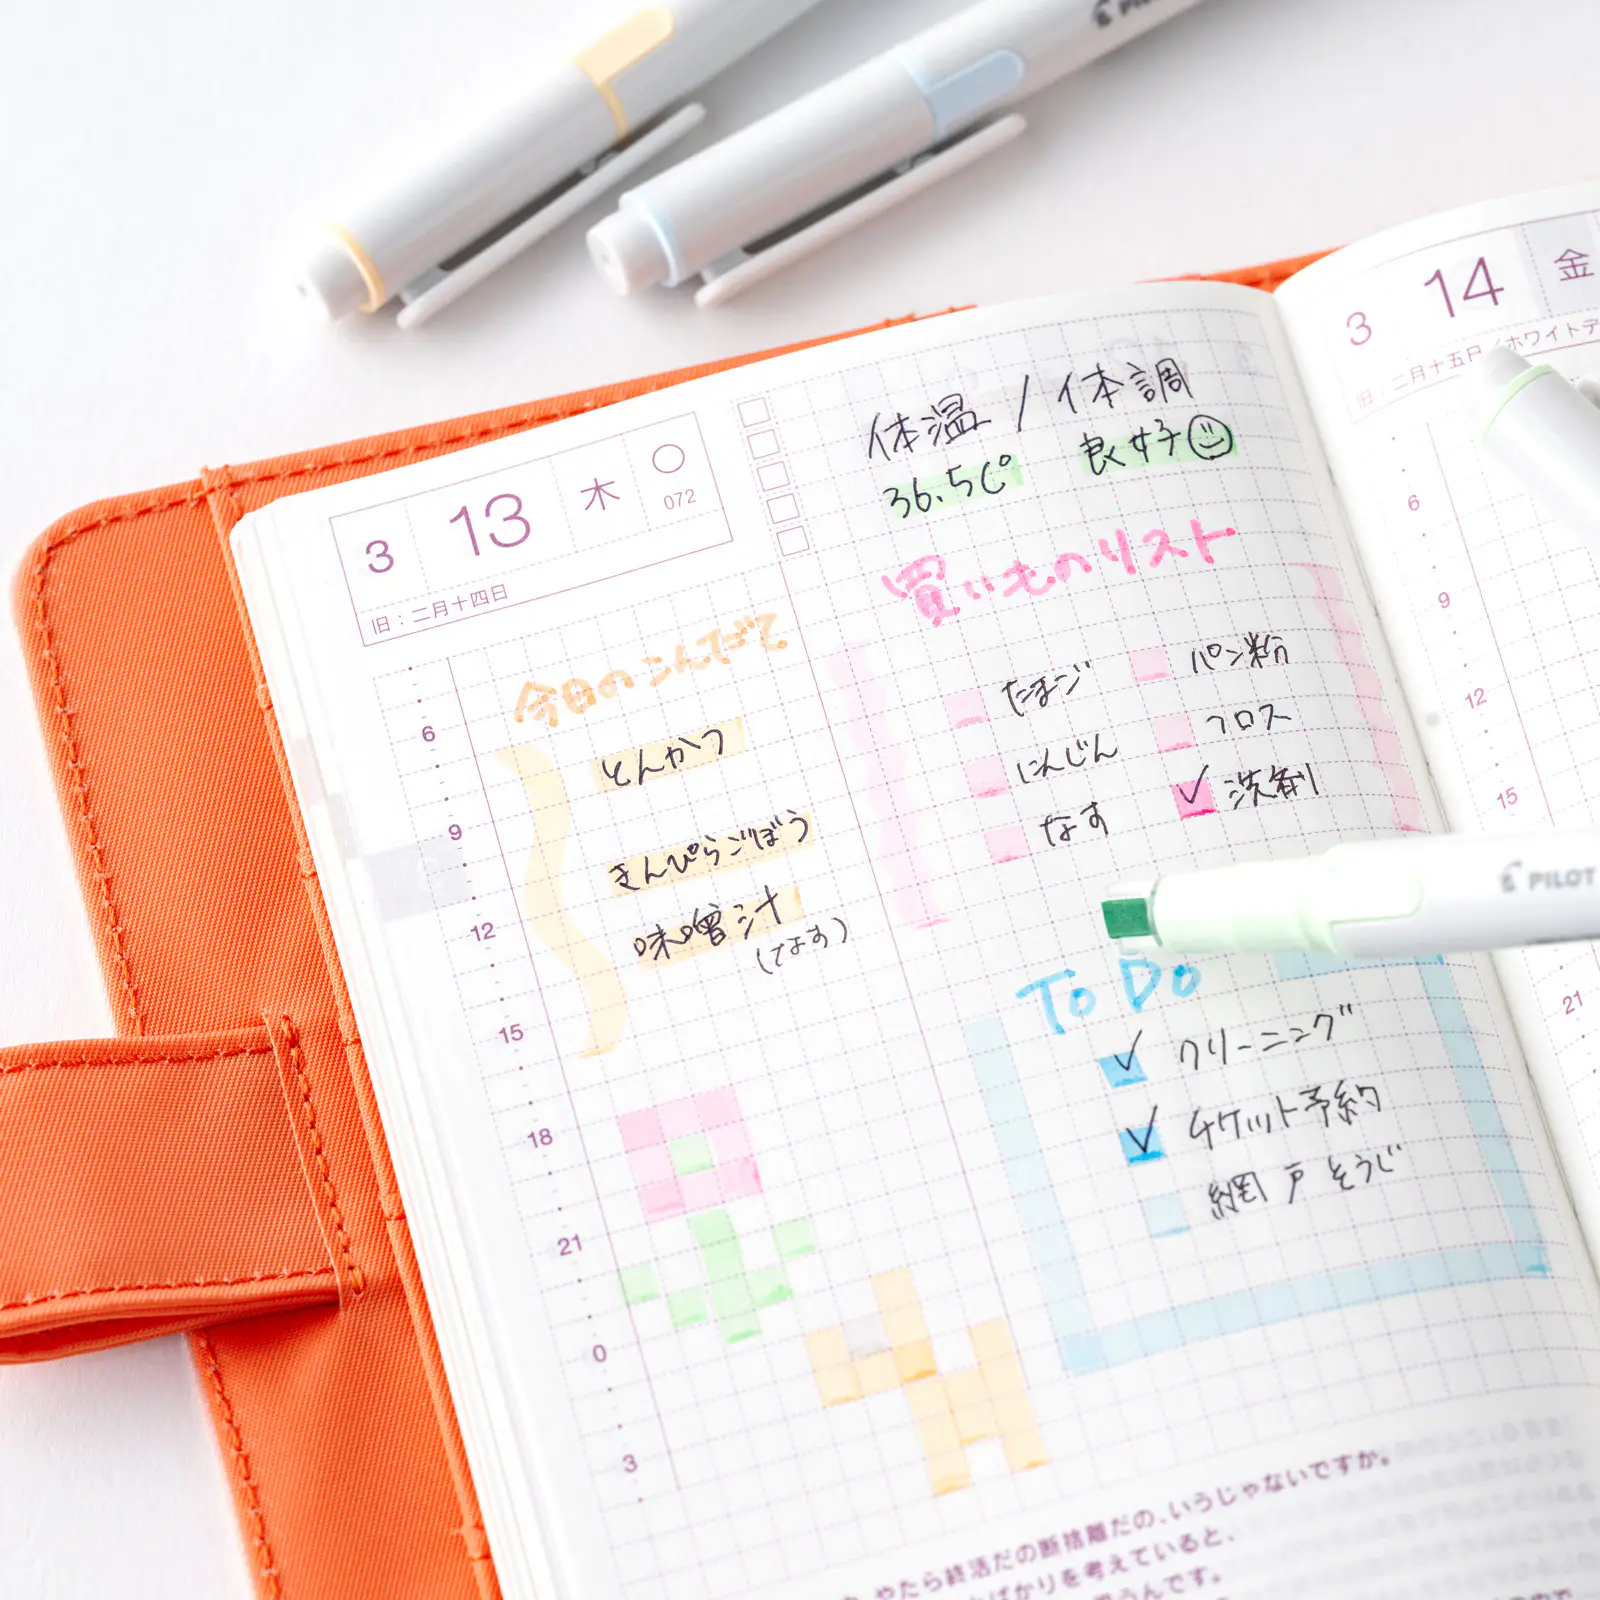 PILOT
3 13 木 072
旧：二月十四日
体温 / 体調
36.5C° 良好
買いものリスト
たまご パン粉
にんじん フロス
なす ✓ 洗剤
今日のこんだて
とんかつ
きんぴらごぼう
味噌汁
(なす)
To Do
✓ クリーニング
✓ チケット予約
網戸そうじ
6
9
12
15
18
21
0
3
やたら終活だの断捨離だの、いうじゃないですか。
ばかりを考えていると、
うんです。
3 14 金
旧：二月十五日／ホワイトデ
6
9
12
15
21
PILOT